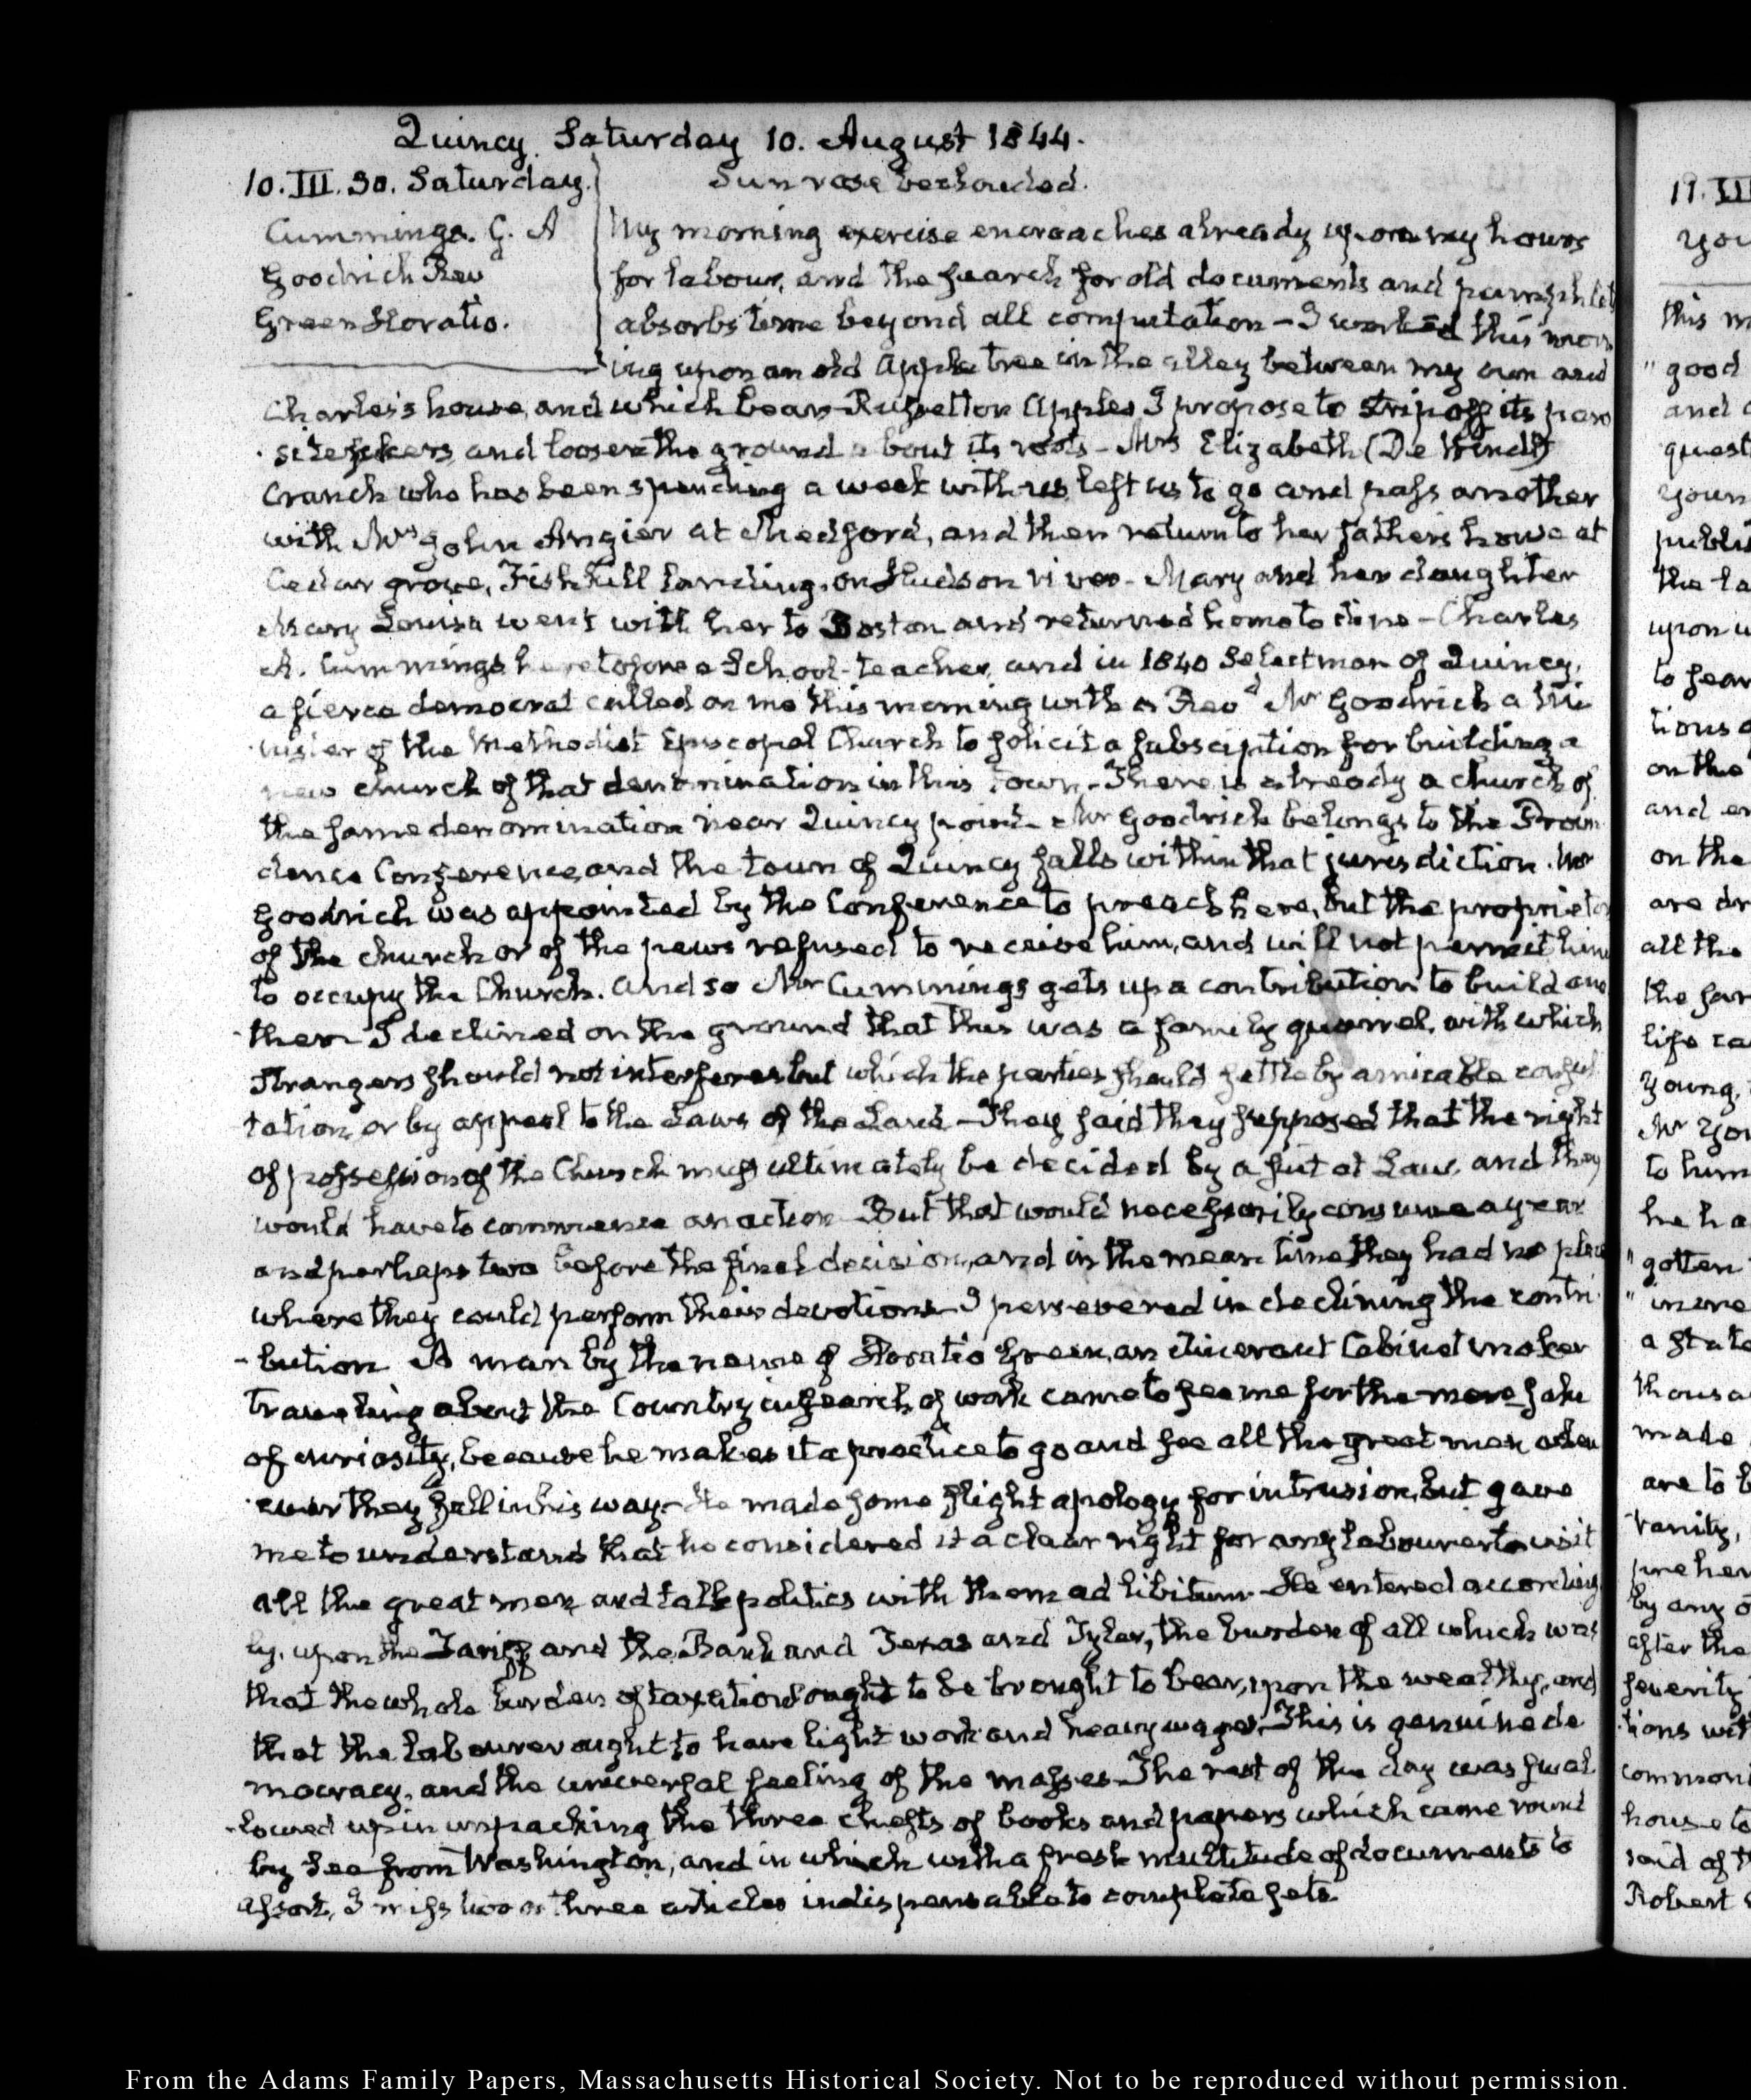 Quincy Saturday 10. August 1844.
10. III. 30. Saturday. Sun rose beclouded.
Cummings. C. A
Goodrich Rev
Green Horatio.
My morning exercise encroaches already upon my hours
for labour, and the search for old documents and pamphlets
absorbs time beyond all computation – I worked this morn
ing upon an old Apple tree in the alley between my own and
Charles's house, and which bears Russetton Apples I propose to strip off its para
site suckers, and loosen the ground about its roots – Mrs Elizabeth (De Windt)
Cranch who has been spending a week with us, left us to go and pass another
with Mrs John Angier at Medford, and then return to her father's house at
Cedar grove, Fishkill Landing, on Hudson river – Mary and her daughter
Mary Louisa went with her to Boston and returned home to dine – Charles
A. Cummings heretofore a School-teacher, and in 1840 Selectman of Quincy,
a fierce democrat called on me this morning with a Revd Mr Goodrich a Mi
nister of the Methodist Episcopal Church to solicit a subsciption for building a
new church of that denomination in this Town – There is already a church of
the same denomination near Quincy point – Mr Goodrich belongs to the Provi
dence Conference, and the town of Quincy falls within that jurisdiction. Mr
Goodrich was appointed by the Conference to preach here, but the proprietors
of the church or of the pews refused to receive him, and will not permit him
to occupy the Church. And so Mr Cummings gets up a contribution to build ano
ther – I declined on the ground that this was a family quarrel, with which
strangers should not interfere, but which the parties should settle by amicable consul
tation, or by appeal to the Laws of the Land – They said they supposed that the right
of possession of the Church must ultimately be decided by a suit at Law, and they
would have to commence an action – But that would necessarily consume a year
and perhaps two before the final decision, and in the mean time they had no place
where they could perform their devotions – I persevered in declining the contri
-bution A man by the name of Horatio Green, an itinerant Cabinet maker
traveling about the Country in search of work came to see me for the mere sake
of curiosity, because he makes it a practice to go and see all the great men when
ever they fall in his way – He made some slight apology for intrusion, but gave
me to understand that he considered it a clear right for any labourer to visit
all the great men and talk politics with them ad libitum – He entered according
ly, upon the Tariff and the Bank and Texas and Tyler, the burden of all which was
that the whole burden of taxation ought to be brought to bear, upon the wealthy, and
that the labourer ought to have light work and heavy wages – This is genuine de
mocracy, and the universal feeling of the masses – The rest of the day was swal
-lowed up in unpacking the three chests of books and papers which came round
by Sea from Washington, and in which with a fresh multitude of documents to
assort, I miss two or three articles indispensable to complete sets.
11. III
you
this m
" good
and
quest
young
publis
the la
upon
to hear
tions
on the
and
on the
are dr
all the
the far
life ca
young,
Mr You
to him
he ha
" gotten
a state
thousa
made
are to b
vanity,
by any
after the
severity
tions wit
common
house to
said of th
Robert
From the Adams Family Papers, Massachusetts Historical Society. Not to be reproduced without permission.